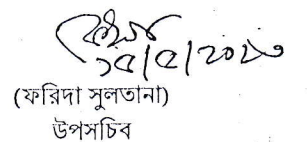 ১৫/৫/২০২৩
(ফরিদা সুলতানা)
উপসচিব